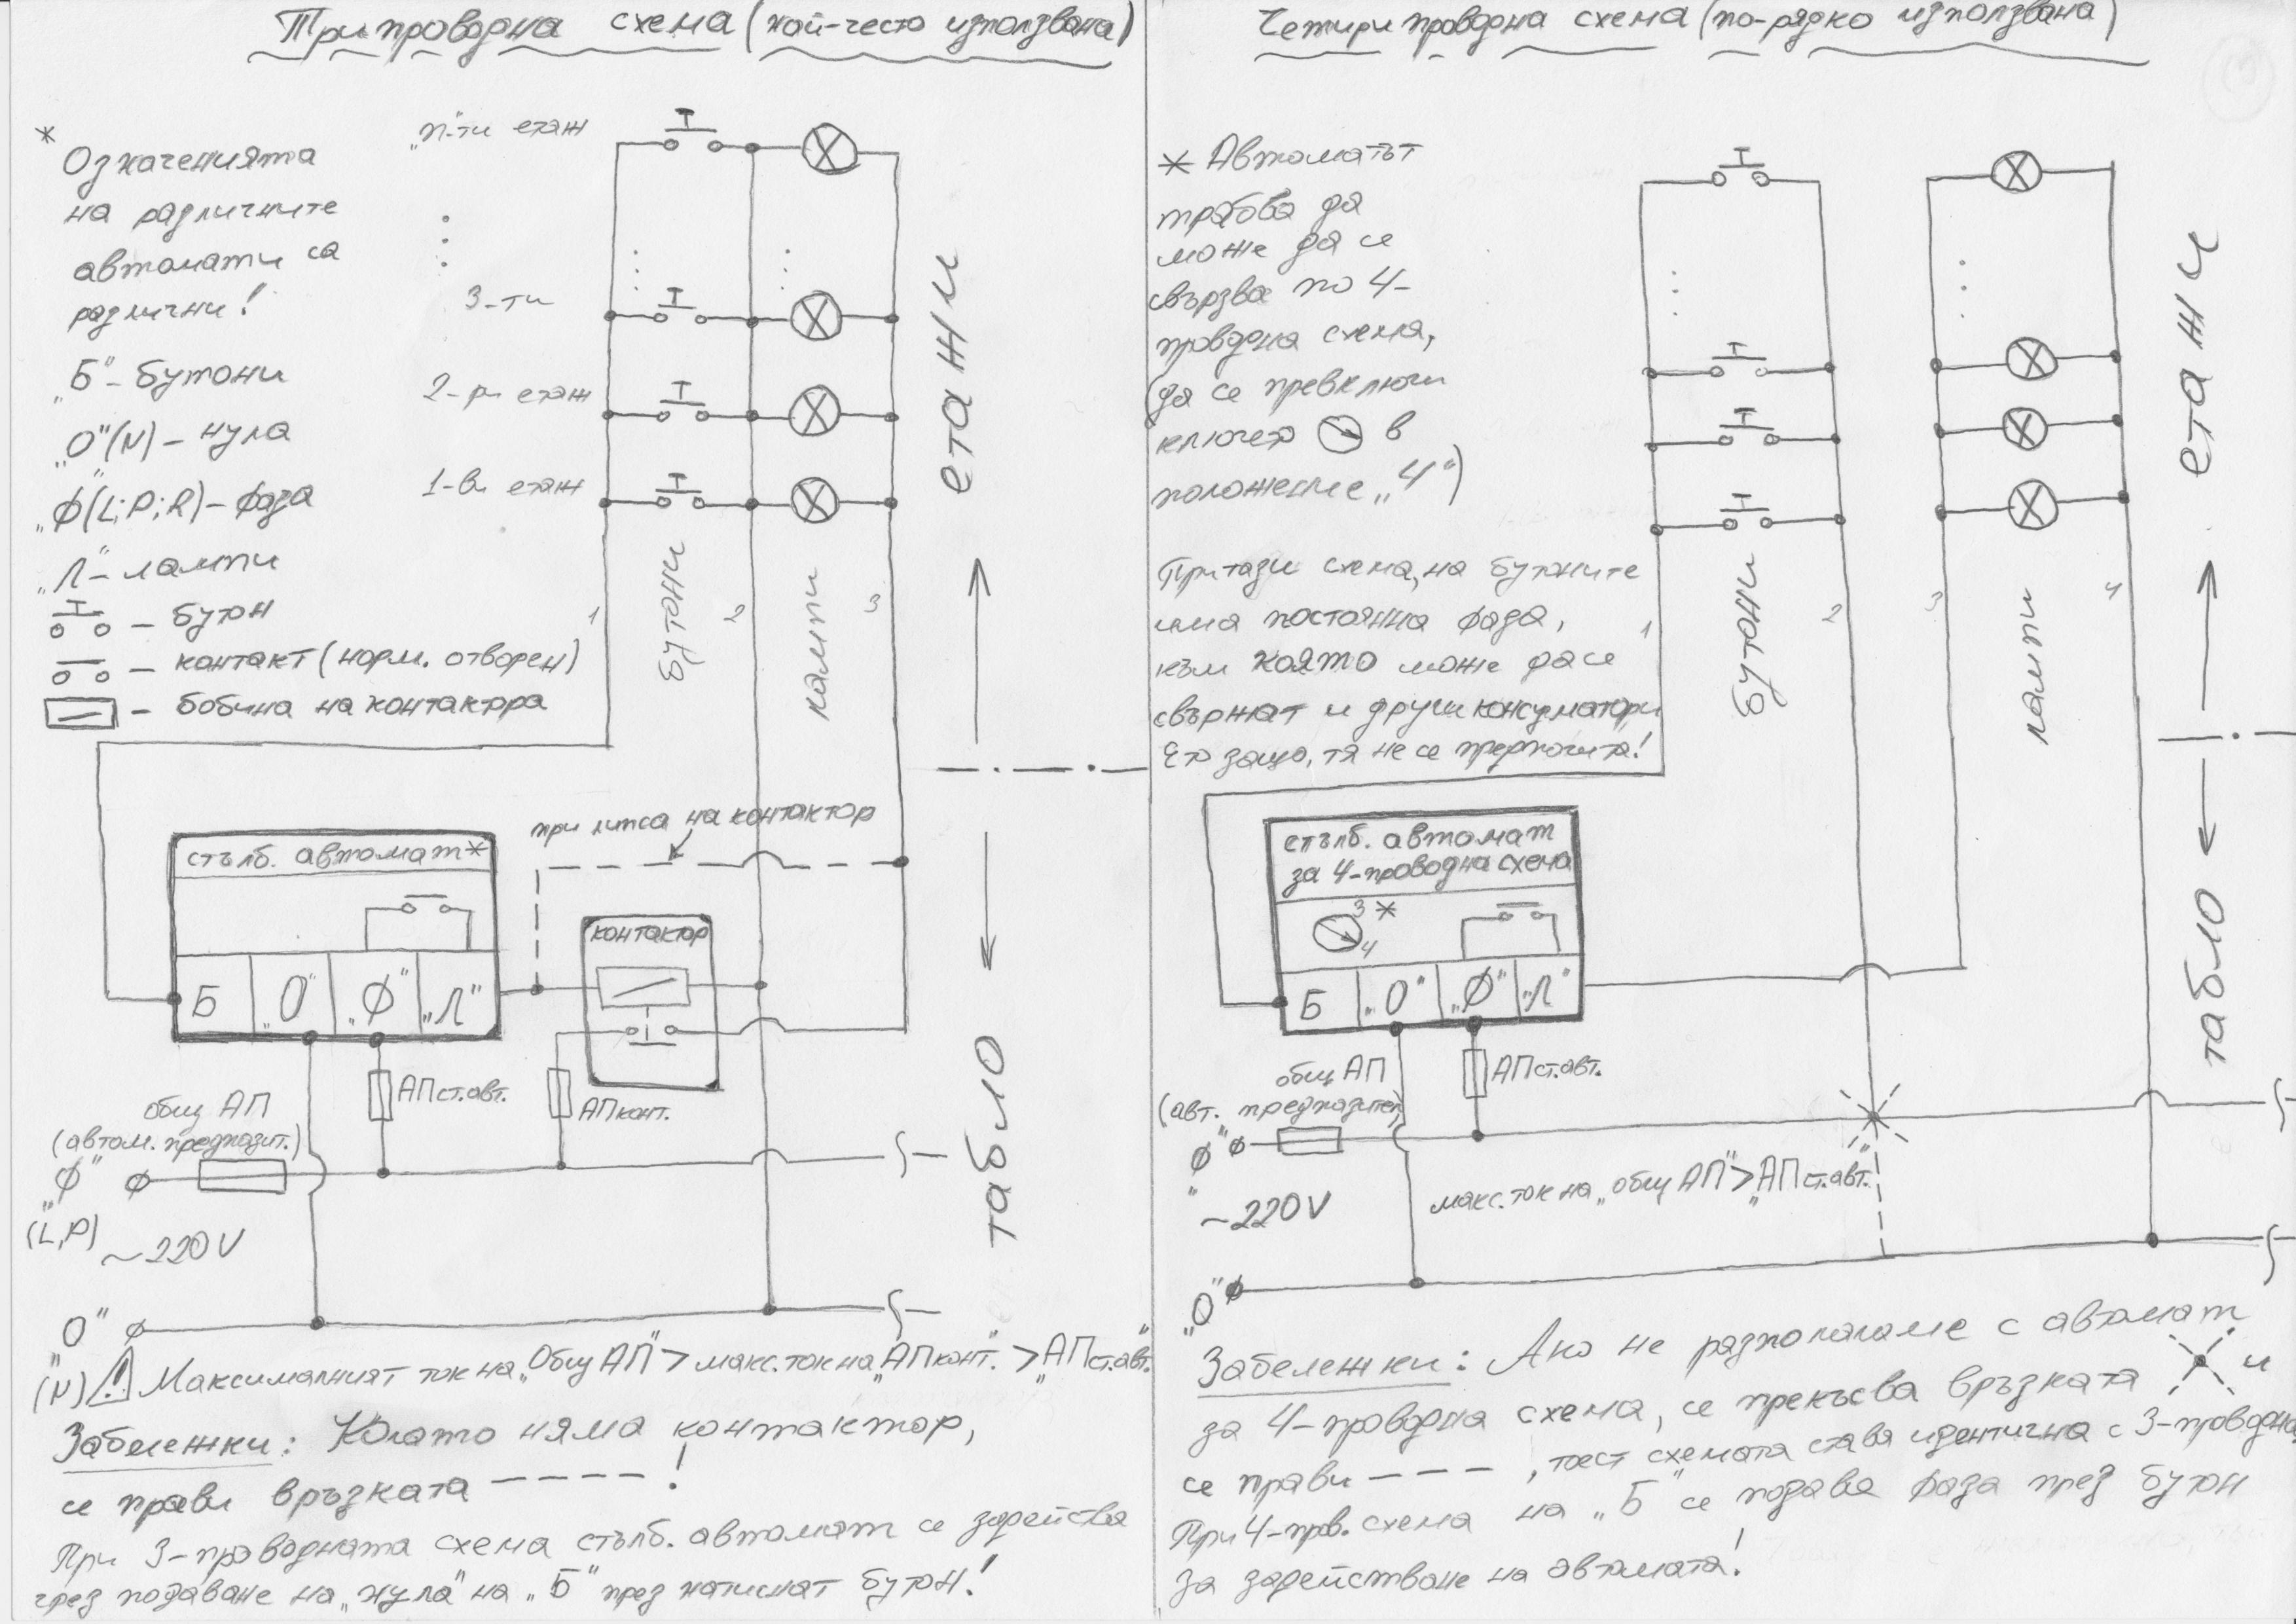 Трипроводна схема (най-често използвана)
*
Означенията
на различните
автомати са
различни!
„Б" - бутони
„0"(N) - нула
„Ф"(L; P; R) - фаза
„Л" - лампи
- бутон
- контакт (норм. отворен)
- бобина на контактора
„n"-ти етаж
3-ти
2-ри етаж
1-ви етаж
1
Бутони
2
лампи
3
етажи
табло
при липса на контактор
стълб. автомат*
Б
„0"
„Ф"
„Л"
контактор
АП ст.авт.
АП конт.
общ АП
(автом. предпазит.)
„Ф"
(L,P)
~220V
„0"
(N)
! Максималният ток на „Общ АП" > макс. ток на „АП конт." > „АП ст.авт."
Забележки: Когато няма контактор,
се прави връзката ----- !
При 3-проводната схема стълб. автомат се задейства
чрез подаване на „нула" на „Б" през натиснат бутон!
Четирипроводна схема (по-рядко използвана)
* Автоматът
трябва да
може да се
свързва по 4-
проводна схема,
(да се превключи
ключето в
положение „4")
При тази схема, на бутоните
има постоянна фаза,
към която може да се
свържат и други консуматори
Ето защо, тя не се предпочита!
1
Бутони
2
3
лампи
4
етажи
табло
стълб. автомат
за 4-проводна схема
3 *
4
Б
„0"
„Ф"
„Л"
АП ст.авт.
общ АП
(авт. предпазител)
„Ф"
~220V
макс. ток на „общ АП" > „АП ст.авт."
„0"
Забележки: Ако не разполагаме с автомат
за 4-проводна схема, се прекъсва връзката и
се прави ---, тоест схемата става идентична с 3-проводна
При 4-пров. схема на „Б" се подава фаза през бутон
за задействане на автомата!